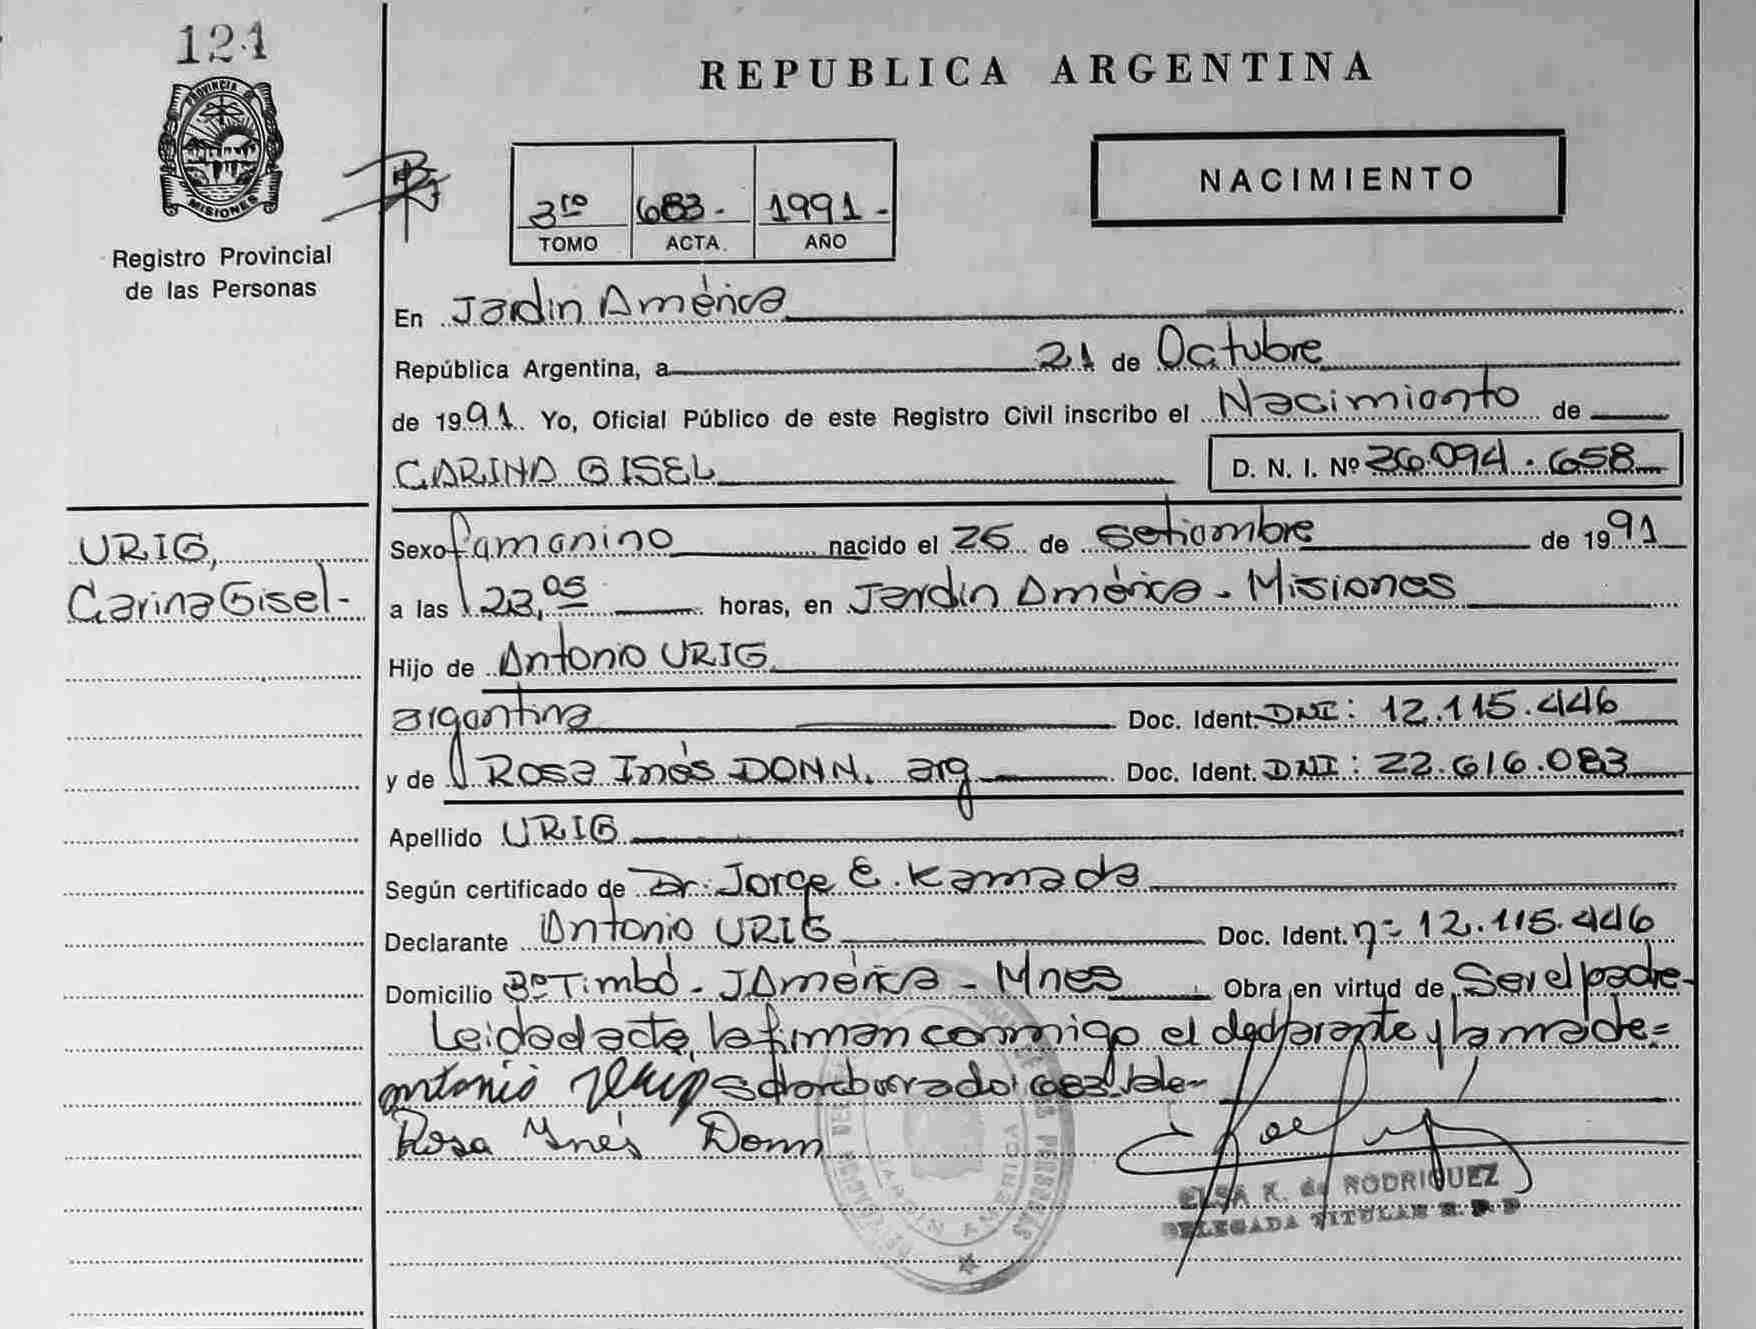 124
PROVINCIA DE
MISIONES
Registro Provincial
de las Personas
REPUBLICA ARGENTINA
NACIMIENTO
3ro 683- 1991-
TOMO ACTA. AÑO
En Jardin América
República Argentina, a 21 de Octubre
de 1991. Yo, Oficial Público de este Registro Civil inscribo el Nacimiento de
CARINA GISEL D. N. I. Nº 36.094.658
URIG,
Carina Gisel-
Sexo femenino nacido el 26 de Setiembre de 1991
a las 23,05 horas, en Jardin América - Misiones
Hijo de Antonio URIG
argentina Doc. Ident. DNI: 12.115.446
y de Rosa Inés DONN. arg Doc. Ident. DNI: 22.616.083
Apellido URIG
Según certificado de Dr. Jorge E. Kamada
Declarante Antonio URIG Doc. Ident. nº 12.115.446
Domicilio Bº Timbó - J América - Mnes Obra en virtud de Ser el padre-
Leida el acta, la firman conmigo el declarante y la madre=
Antonio Urig Sobreborrado: 683 Vale-
Rosa Ynés Donn
JARDIN AMERICA
ELSA K. de RODRIGUEZ
DELEGADA TITULAR R. P. P